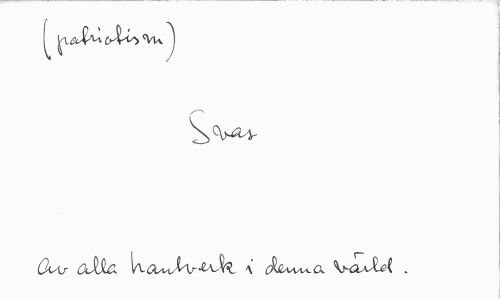 (patriotism)
Svar
Av alla hantverk i denna värld.